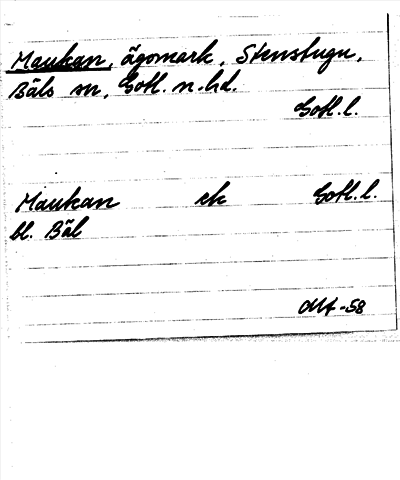 Maukan, ägomark, Stenstugu,
Bäls sn, Gotl. n. hd.
Gotl. l.
Maukan ek Gotl. l.
bl. Bäl
-58